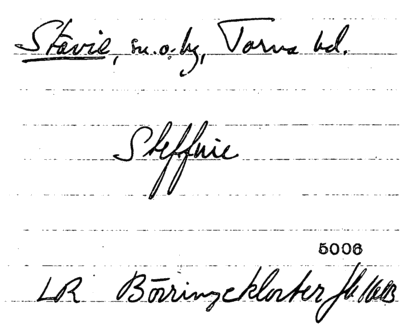 Stävie, sn. o. by, Torna hd.
Steffuie
5006
LR Börringekloster Jb